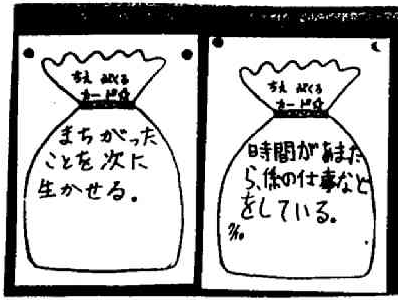 ちえ ぶくろ
カード
まちがった
ことを次に
生かせる。
ちえ ぶくろ
カード
時間があまた
ら、係の仕事など
をしている。
7/10